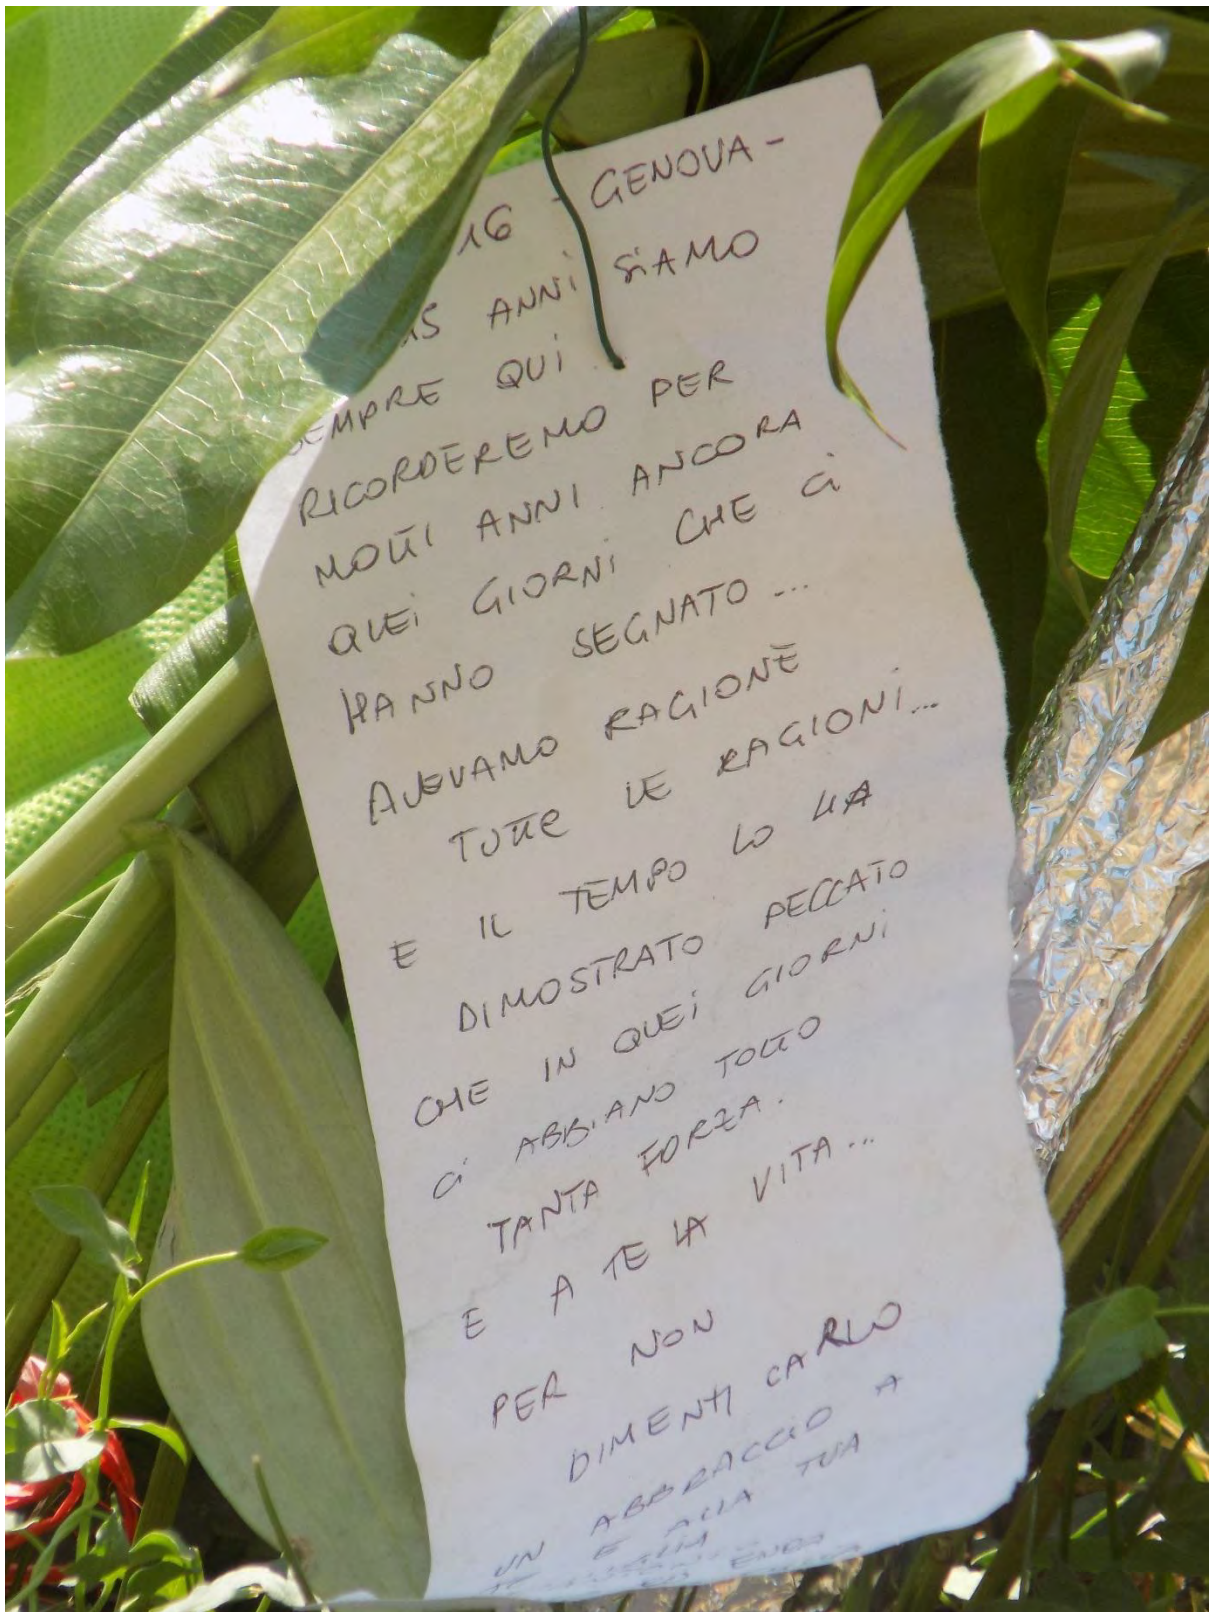 16 - GENOVA -
15 ANNI SIAMO
SEMPRE QUI.
RICORDEREMO PER
MOLTI ANNI ANCORA
QUEI GIORNI CHE CI
HANNO SEGNATO ...
AVEVAMO RAGIONE
TUTTE LE RAGIONI...
E IL TEMPO LO HA
DIMOSTRATO PECCATO
CHE IN QUEI GIORNI
CI ABBIANO TOLTO
TANTA FORZA.
E A TE LA VITA...
PER NON
DIMENTI CARLO
UN ABBRACCIO A
TE E ALLA TUA